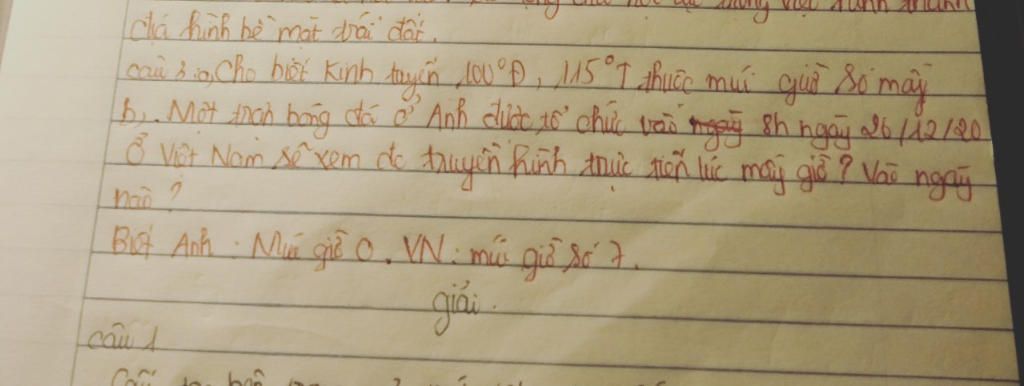 địa hình bề mặt trái đất.
câu 3 a, Cho biết kinh tuyến 100°Đ, 115°T thuộc múi giờ số mấy
b, Một trận bóng đá ở Anh được tổ chức vào ngày 8h ngày 26/12/20
Ở Việt Nam sẽ xem đc truyền hình trực tiến lúc mấy giờ? Vào ngày
nào?
Biết Anh: Múi giờ 0. VN: múi giờ số 7.
giải.
câu 1